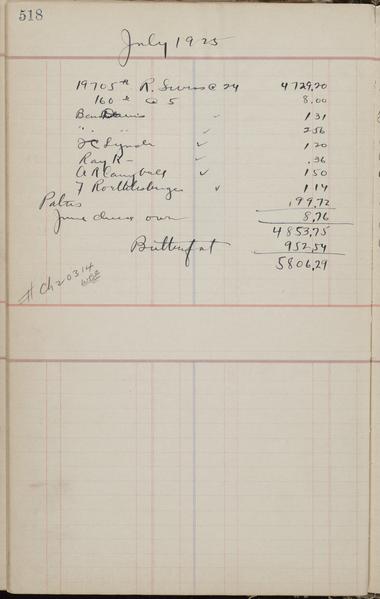 518
July 1925
19705 # R. Swiss @ 24 4729.20
160 # @ 5 8.00
Ben Davis ✓ 1 31
" " ✓ 2 56
Lynch ✓ 1 20
Ray R- ✓ .36
A R Campbell ✓ 1 50
F ✓ 1 14
Patrs 199.72
June dues own 8.76
4853.75
Butterfat 952.54
5806.29
# Ch 20314